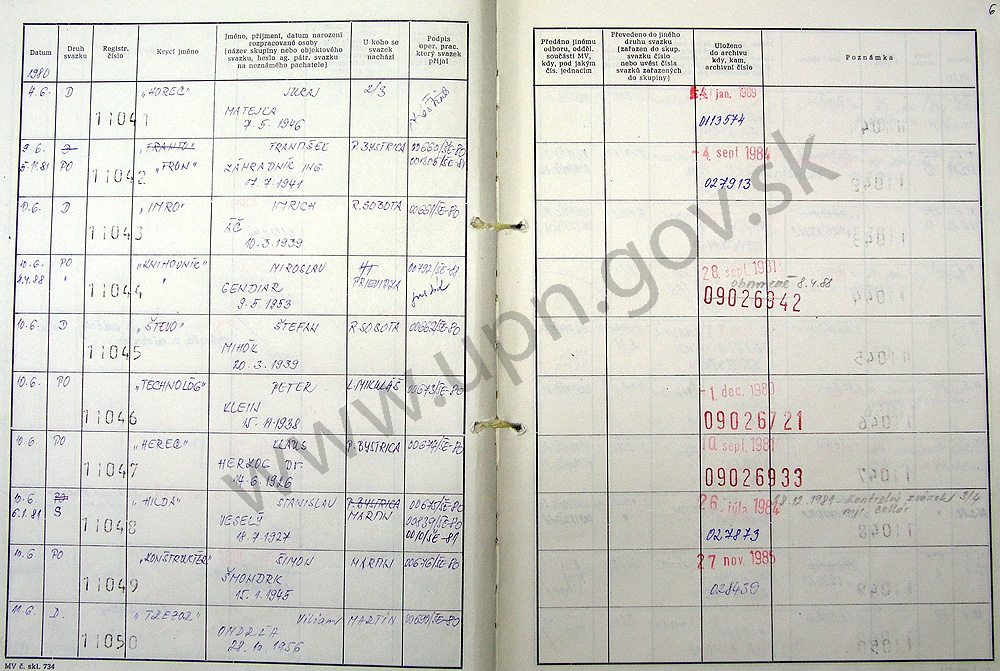 6
Datum
Druh svazku
Registr. číslo
Krycí jméno
Jméno, příjmení, datum narození rozpracované osoby (název skupiny nebo objektového svazku, heslo ag. pátr. svazku na neznámého pachatele)
U koho se svazek nachází
Podpis oper. prac. který svazek přijal
Předáno jinému odboru, odděl. součásti MV, kdy, pod jakým čís. jednacím
Převedeno do jiného druhu svazku (zařazen do skup. svazku číslo nebo uvést čísla svazků zařazených do skupiny)
Uloženo do archivu kdy, kam, archivní číslo
Poznámka
1980
4.6. D 11041 "HOREC" JURAJ 2/3
MATEJKA
7.5.1946
jan. 1989
0113574
9.6. 11042 "FRANTO" FRANTIŠEK B.BYSTRICA 00660/SE-80
5.11.81 PO "FRON" ZÁHRADNÍK ING.
17.7.1941
-4. sept 1984
027913
10.6. D 11043 "IMRO" IMRICH R.SOBOTA 00661/SE-80
10.3.1939
10.6. PO 11044 "KNIHOVNÍK" MIROSLAV
PRIEVIDZA
GENDIAR
9.5.1953
28. sept. 1981
obnovené 8.4.88
09026942
10.6. D 11045 "ŠTEVO" ŠTEFAN R.SOBOTA 00662/SE-80
MIHÓK
20.3.1939
10.6. PO 11046 "TECHNOLÓG" PETER L.MIKULÁŠ 00673/SE-80
KLEIN
15.11.1938
-1. dec. 1980
09026721
10.6. PO 11047 "HEREC" KLAUS B.BYSTRICA 00674/SE-80
HERZOG Dr.
14.6.1926
10. sept. 1981
09026933
10.6. 11048 "HILDA" STANISLAV B.BYSTRICA 00675/SE-80
6.1.81 S MARTIN 00839/SE-80
VESELÝ 0010/SE-81
18.7.1927
26. júla 1984
027873
17.12.1981 - kontrolný zväzok 3/4
mjr. Cellár
10.6. PO 11049 "KONŠTRUKTER" ŠIMON MARTIN 00676/SE-80
ŠMONDRK
15.1.1945
27 nov. 1985
028439
11.6. D. 11050 "TREZOR" Viliam MARTIN 00690/SE-80
ONDRÍA
28.10.1956
MV č. skl. 734
www.upn.gov.sk